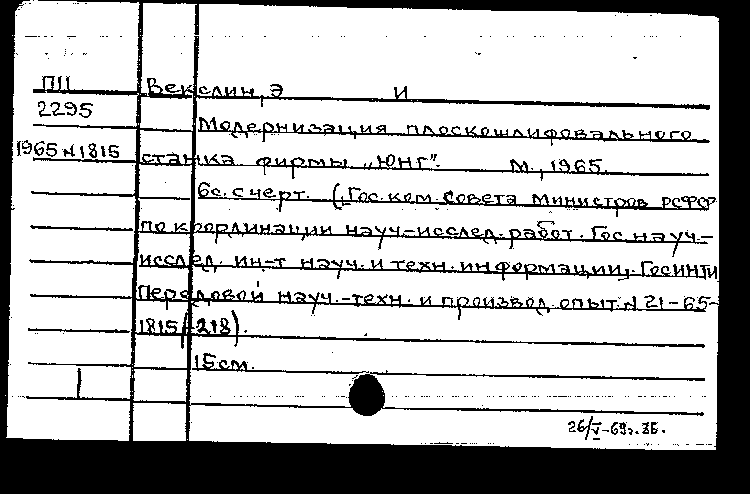 ПII Векслин, Э И
2295
Модернизация плоскошлифовального
1965 N 1815 станка фирмы „Юнг". М., 1965.
6с. с черт. (Гос. ком. Совета Министров РСФСР
по координации науч.-исслед. работ. Гос. науч.-
исслед. ин-т науч. и техн. информации, ГОСИНТИ
Передовой науч.-техн. и производ. опыт. N 21-65-
1815/218).
15 см.
26/V-69г.